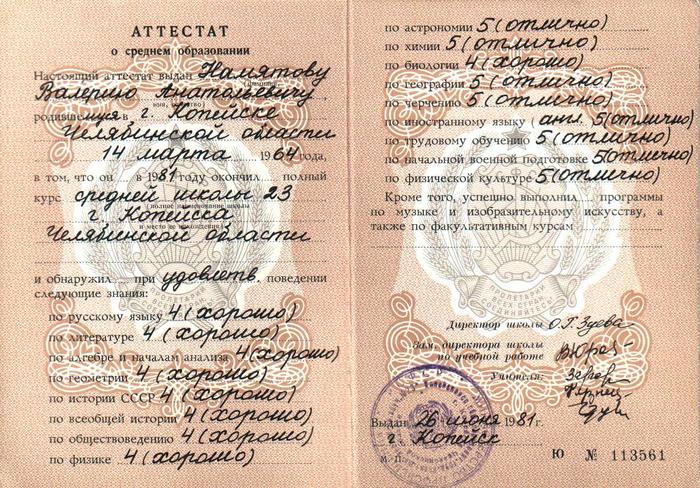 АТТЕСТАТ
о среднем образовании
Настоящий аттестат выдан Намятову
Валерию Анатольевичу
родившемуся в г. Копейске
Челябинской области
14 марта 1964 года,
в том, что он в 1981 году окончил полный
курс средней школы 23
(полное наименование школы
г. Копейска
и место ее нахождения)
Челябинской области
и обнаружил при удовлетв. поведении
следующие знания:
по русскому языку 4 (хорошо)
по литературе 4 (хорошо)
по алгебре и началам анализа 4 (хорошо)
по геометрии 4 (хорошо)
по истории СССР 4 (хорошо)
по всеобщей истории 4 (хорошо)
по обществоведению 4 (хорошо)
по физике 4 (хорошо)
по астрономии 5 (отлично)
по химии 5 (отлично)
по биологии 4 (хорошо)
по географии 5 (отлично)
по черчению 5 (отлично)
по иностранному языку (англ. 5 (отлично)
по трудовому обучению 5 (отлично)
по начальной военной подготовке 5 (отлично)
по физической культуре 5 (отлично)
Кроме того, успешно выполнил программы
по музыке и изобразительному искусству, а
также по факультативным курсам
ПРОЛЕТАРИИ
ВСЕХ СТРАН,
СОЕДИНЯЙТЕСЬ!
Директор школы О.Г. Зуева
Зам. директора школы
по учебной работе
Учителя:
Выдан 26 июня 1981 г.
г. Копейск
М. П.
Ю № 113561